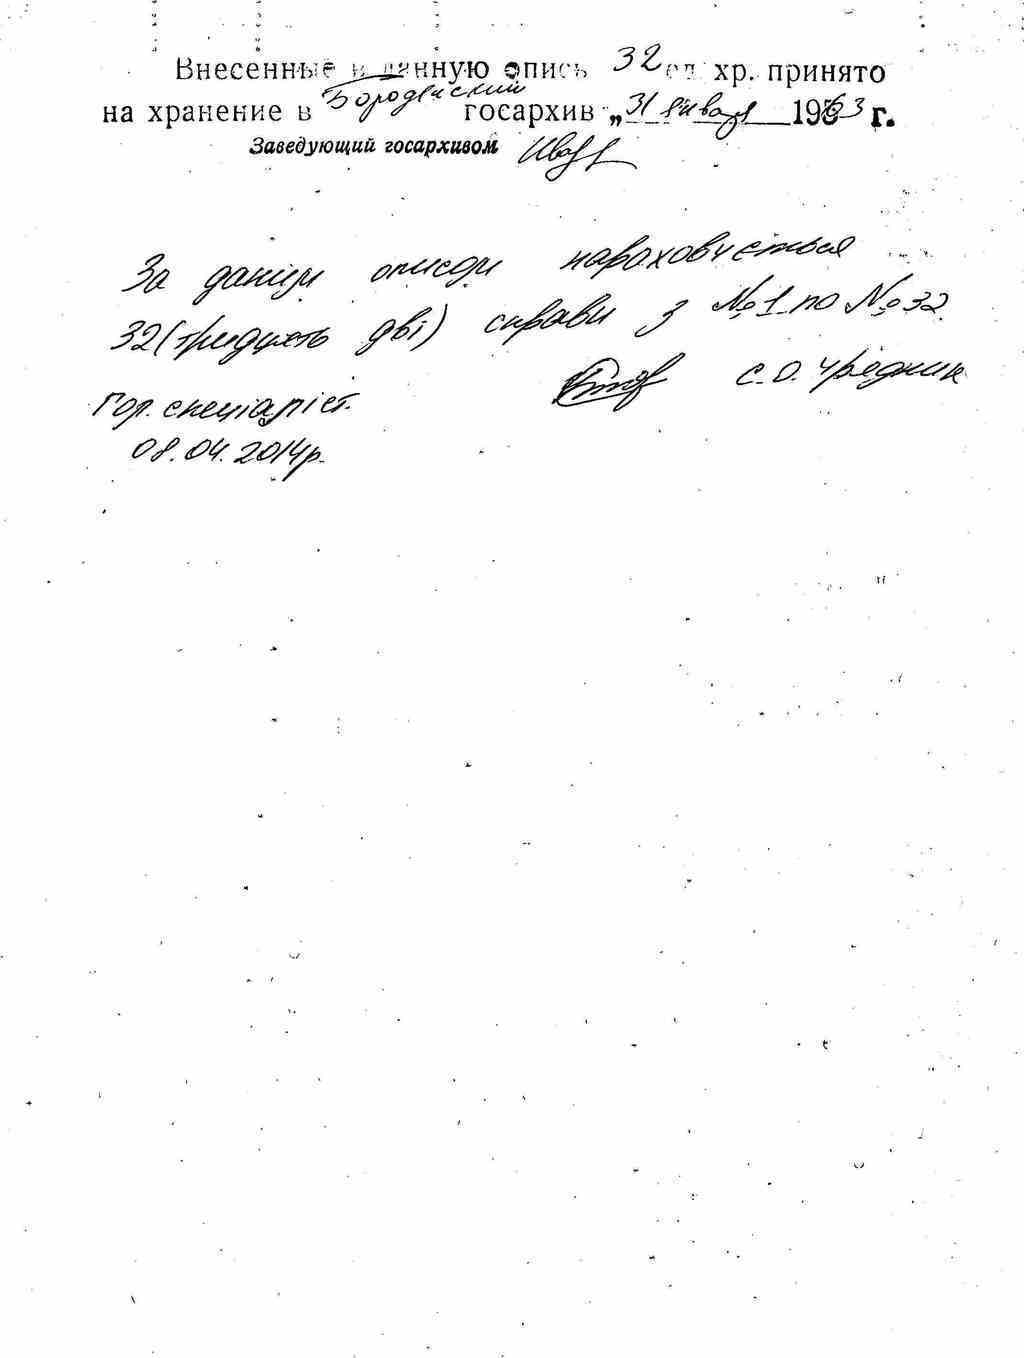 Внесенные в данную опись 32 ед. хр. принято
на хранение в госархив „31 января 1963 г.
Заведующий госархивом
За даним описом нараховується
32 (тридцять дві) справи з №1 по №32
Гол. спеціаліст. С.О. Чредник
08.04.2014р.